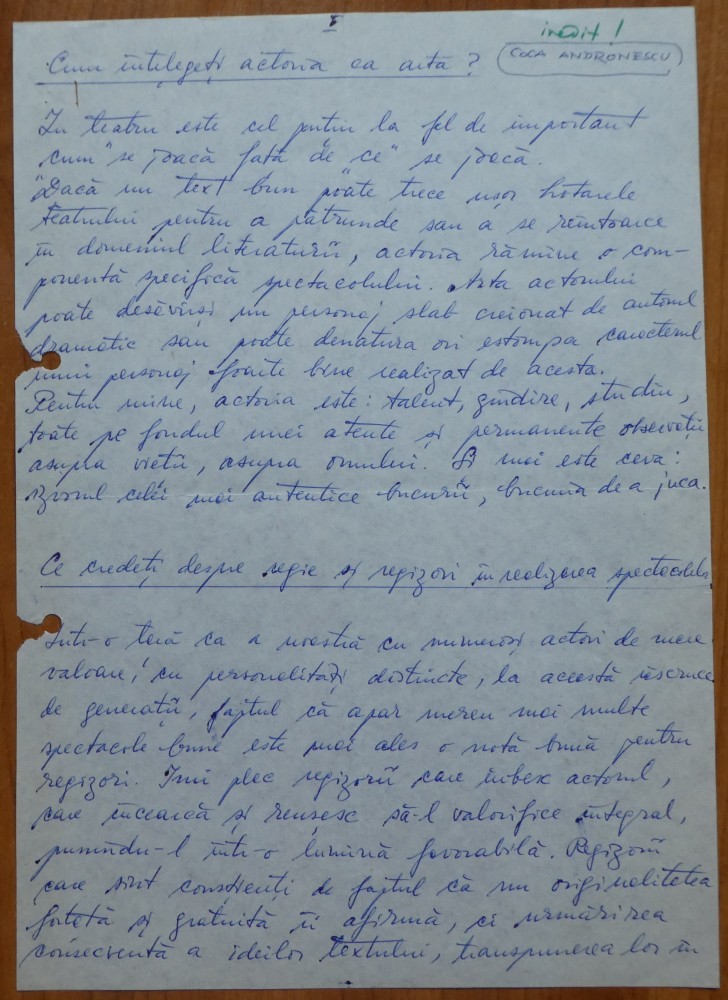 I
inedit !
Cum înțelegeți actoria ca artă ?
COCA ANDRONESCU
In teatru este cel puțin la fel de important
"cum" se joacă față de "ce" se joacă.
Dacă un text bun poate trece ușor hotarele
teatrului pentru a pătrunde sau a se reîntoarce
în domeniul literaturii, actoria rămîne o com-
ponentă specifică spectacolului. Arta actorului
poate desăvîrși un personaj slab creionat de autorul
dramatic sau poate denatura ori estompa caracterul
unui personaj foarte bine realizat de acesta.
Pentru mine, actoria este: talent, gîndire, studiu,
toate pe fondul unei atente și permanente observații
asupra vieții, asupra omului. Și mai este ceva:
izvorul celei mai autentice bucurii, bucuria de a juca.
Ce credeți despre regie și regizori în realizarea spectacolelor
Într-o țară ca a noastră cu numeroși actori de mare
valoare, cu personalități distincte, la această
de generații, faptul că apar mereu mai multe
spectacole bune este mai ales o notă bună pentru
regizori. Imi plac regizorii care iubesc actorul,
care încearcă și reușesc să-l valorifice integral,
punîndu-l într-o lumină favorabilă. Regizorii
care sînt conștienți de faptul că nu originalitatea
forțată și gratuită îi afirmă, ci urmărirea
consecventă a ideilor textului, transpunerea lor în